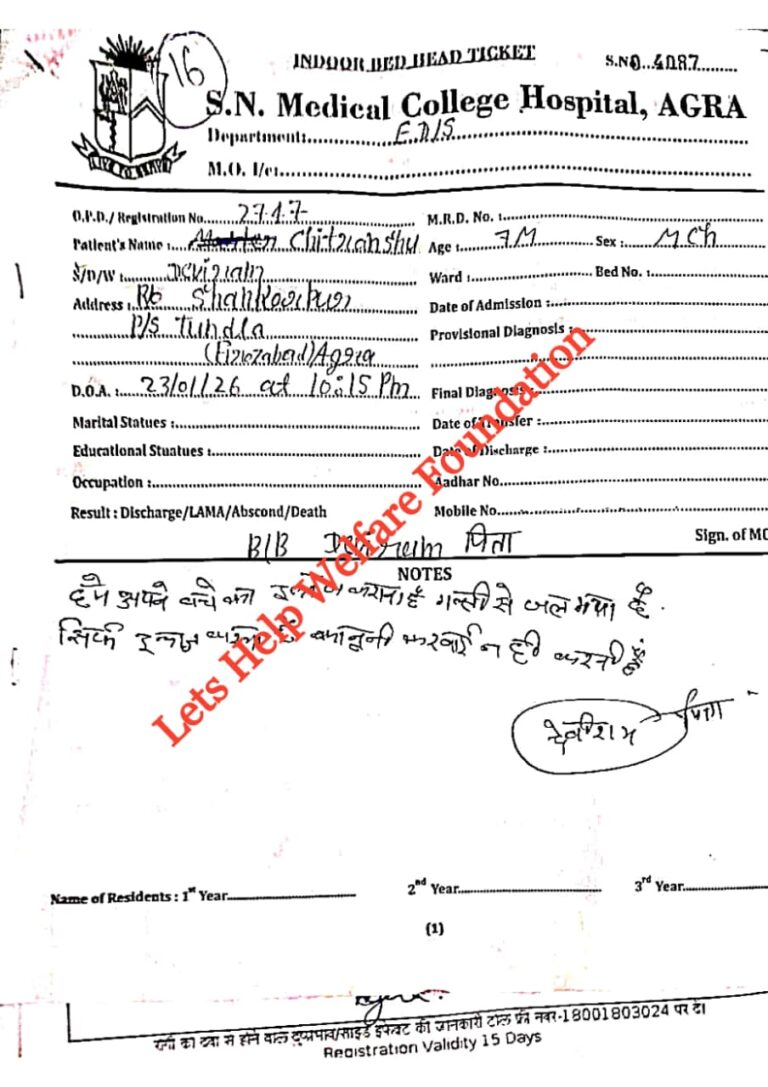 16
INDOOR BED HEAD TICKET
S.NO. 4087
S.N. Medical College Hospital, AGRA
Department: E.D/S
M.O. I/c:
LIVE TO SERVE
O.P.D./ Registration No. 2717
M.R.D. No. :
Patient's Name : Chitranshu
Age : 7M Sex : M Ch
S/D/W : Deviram
Ward : Bed No. :
Address : R/o Shankerpur
Date of Admission :
P/S Tundla
Provisional Diagnosis :
(Firozabad) Agra
D.O.A. : 23/01/26 at 10:15 Pm
Final Diagnosis :
Marital Statues :
Date of Transfer :
Educational Stuatues :
Date of Discharge :
Occupation :
Aadhar No.
Result : Discharge/LAMA/Abscond/Death
Mobile No.
B/B Deviram पिता
Sign. of MO
NOTES
हमे अपने बच्चे का इलाज कराना है गल्ती से जल गया है.
सिर्फ इलाज कराना है कानूनी करवाई न ही करनी है
देवीराम पिता
Lets Help Welfare Foundation
Name of Residents : 1st Year 2nd Year 3rd Year
(1)
रोगी को दवा से होने वाले दुष्प्रभाव/साइड इफेक्ट की जानकारी टोल फ्री नंबर-18001803024 पर दें।
Registration Validity 15 Days